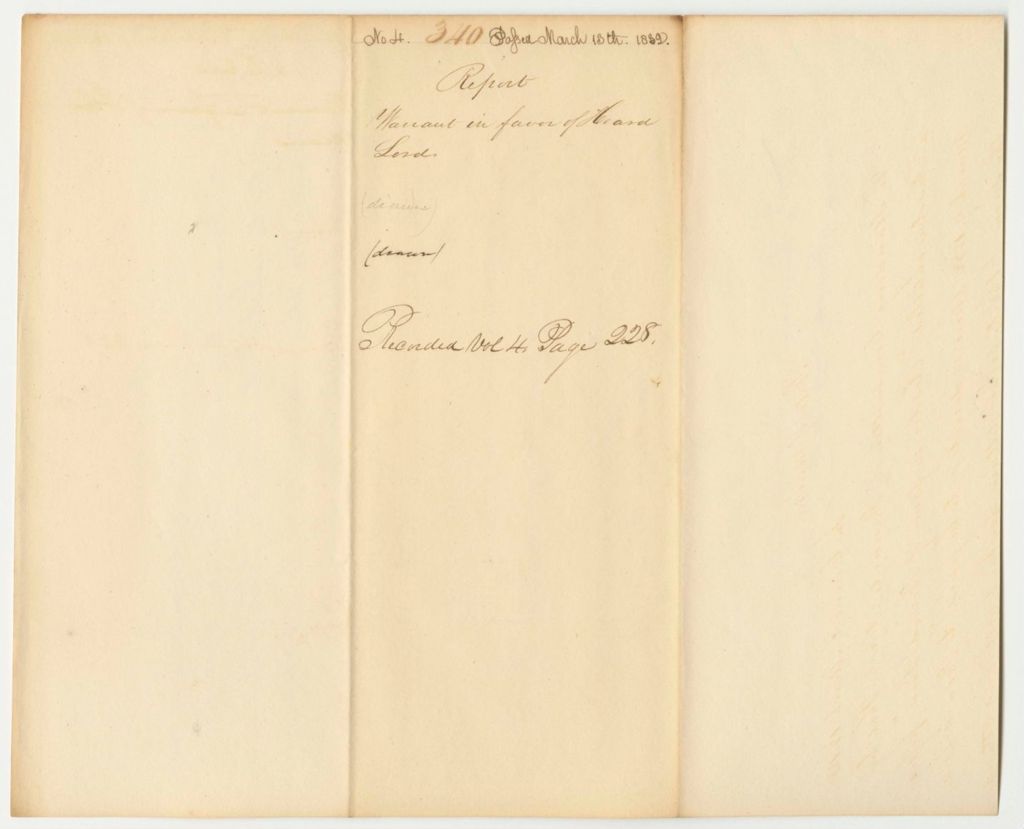 No 4. 340 Passed March 13th. 1832.
Report
Warrant in favor of Heard
Lord
(drawn)
(drawn)
Recorded Vol 4. Page 228.